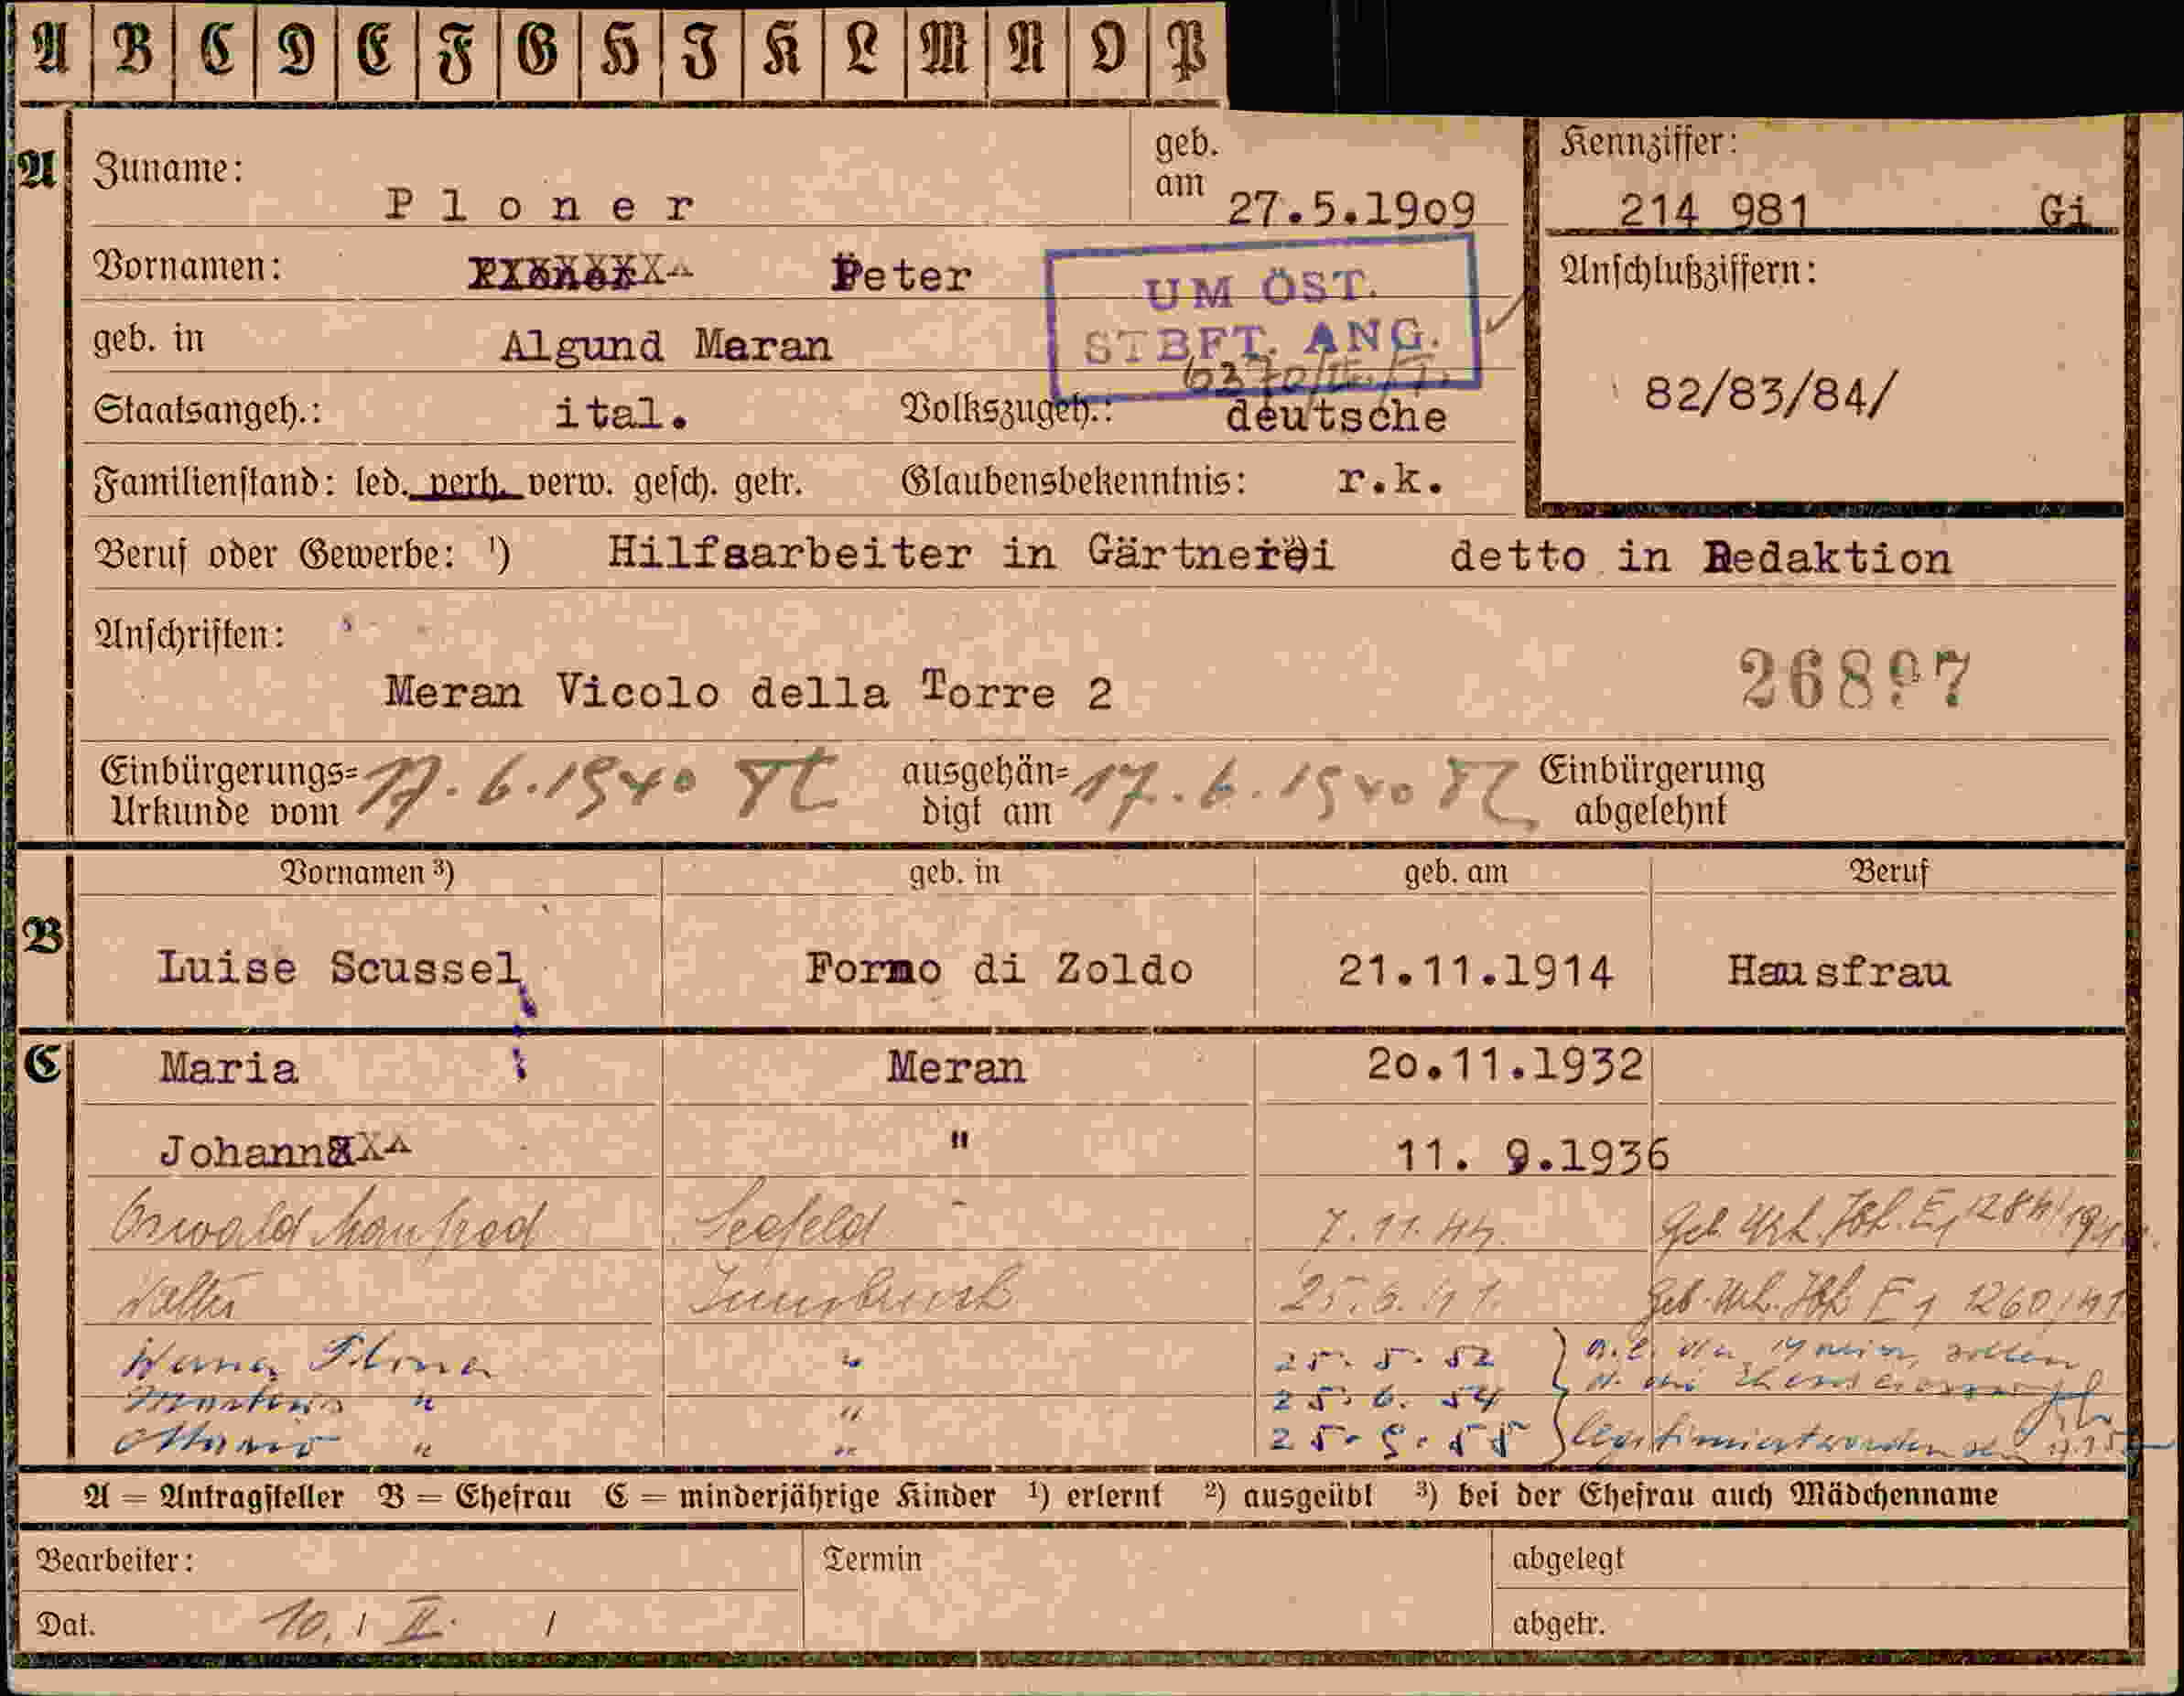 A B C D E F G H I K L M N O P
A Zuname: Ploner geb. am 27.5.1909 Kennziffer: 214 981 Gi
Vornamen: Peter UM ÖST. Anschlußziffern:
geb. in Algund Meran STBFT. ANG.
82/83/84/
Staatsangeh.: ital. Volkszugeh.: deutsche
Familienstand: led. verh. verw. gesch. getr. Glaubensbekenntnis: r.k.
Beruf oder Gewerbe: ¹) Hilfsarbeiter in Gärtnerei detto in Redaktion
Anschriften:
Meran Vicolo della Torre 2 26897
Einbürgerungs= Urkunde vom 17.6.1940 ausgehän= digt am 17.6.1940 Einbürgerung abgelehnt
Vornamen ³) geb. in geb. am Beruf
B Luise Scussel Forno di Zoldo 21.11.1914 Hausfrau
C Maria Meran 20.11.1932
Johann " 11. 9.1936
Oswald Manfred Seefeld 7.11.44. Geb. Urk.
Walter Innsbruck Geb. Urk. 1260/41
" 25. 5. 52
" " 25. 6. 54
" " legitimiert worden
A = Antragsteller B = Ehefrau C = minderjährige Kinder ¹) erlernt ²) ausgeübt ³) bei der Ehefrau auch Mädchenname
Bearbeiter: Termin abgelegt
Dat. 10. / II. / abgetr.